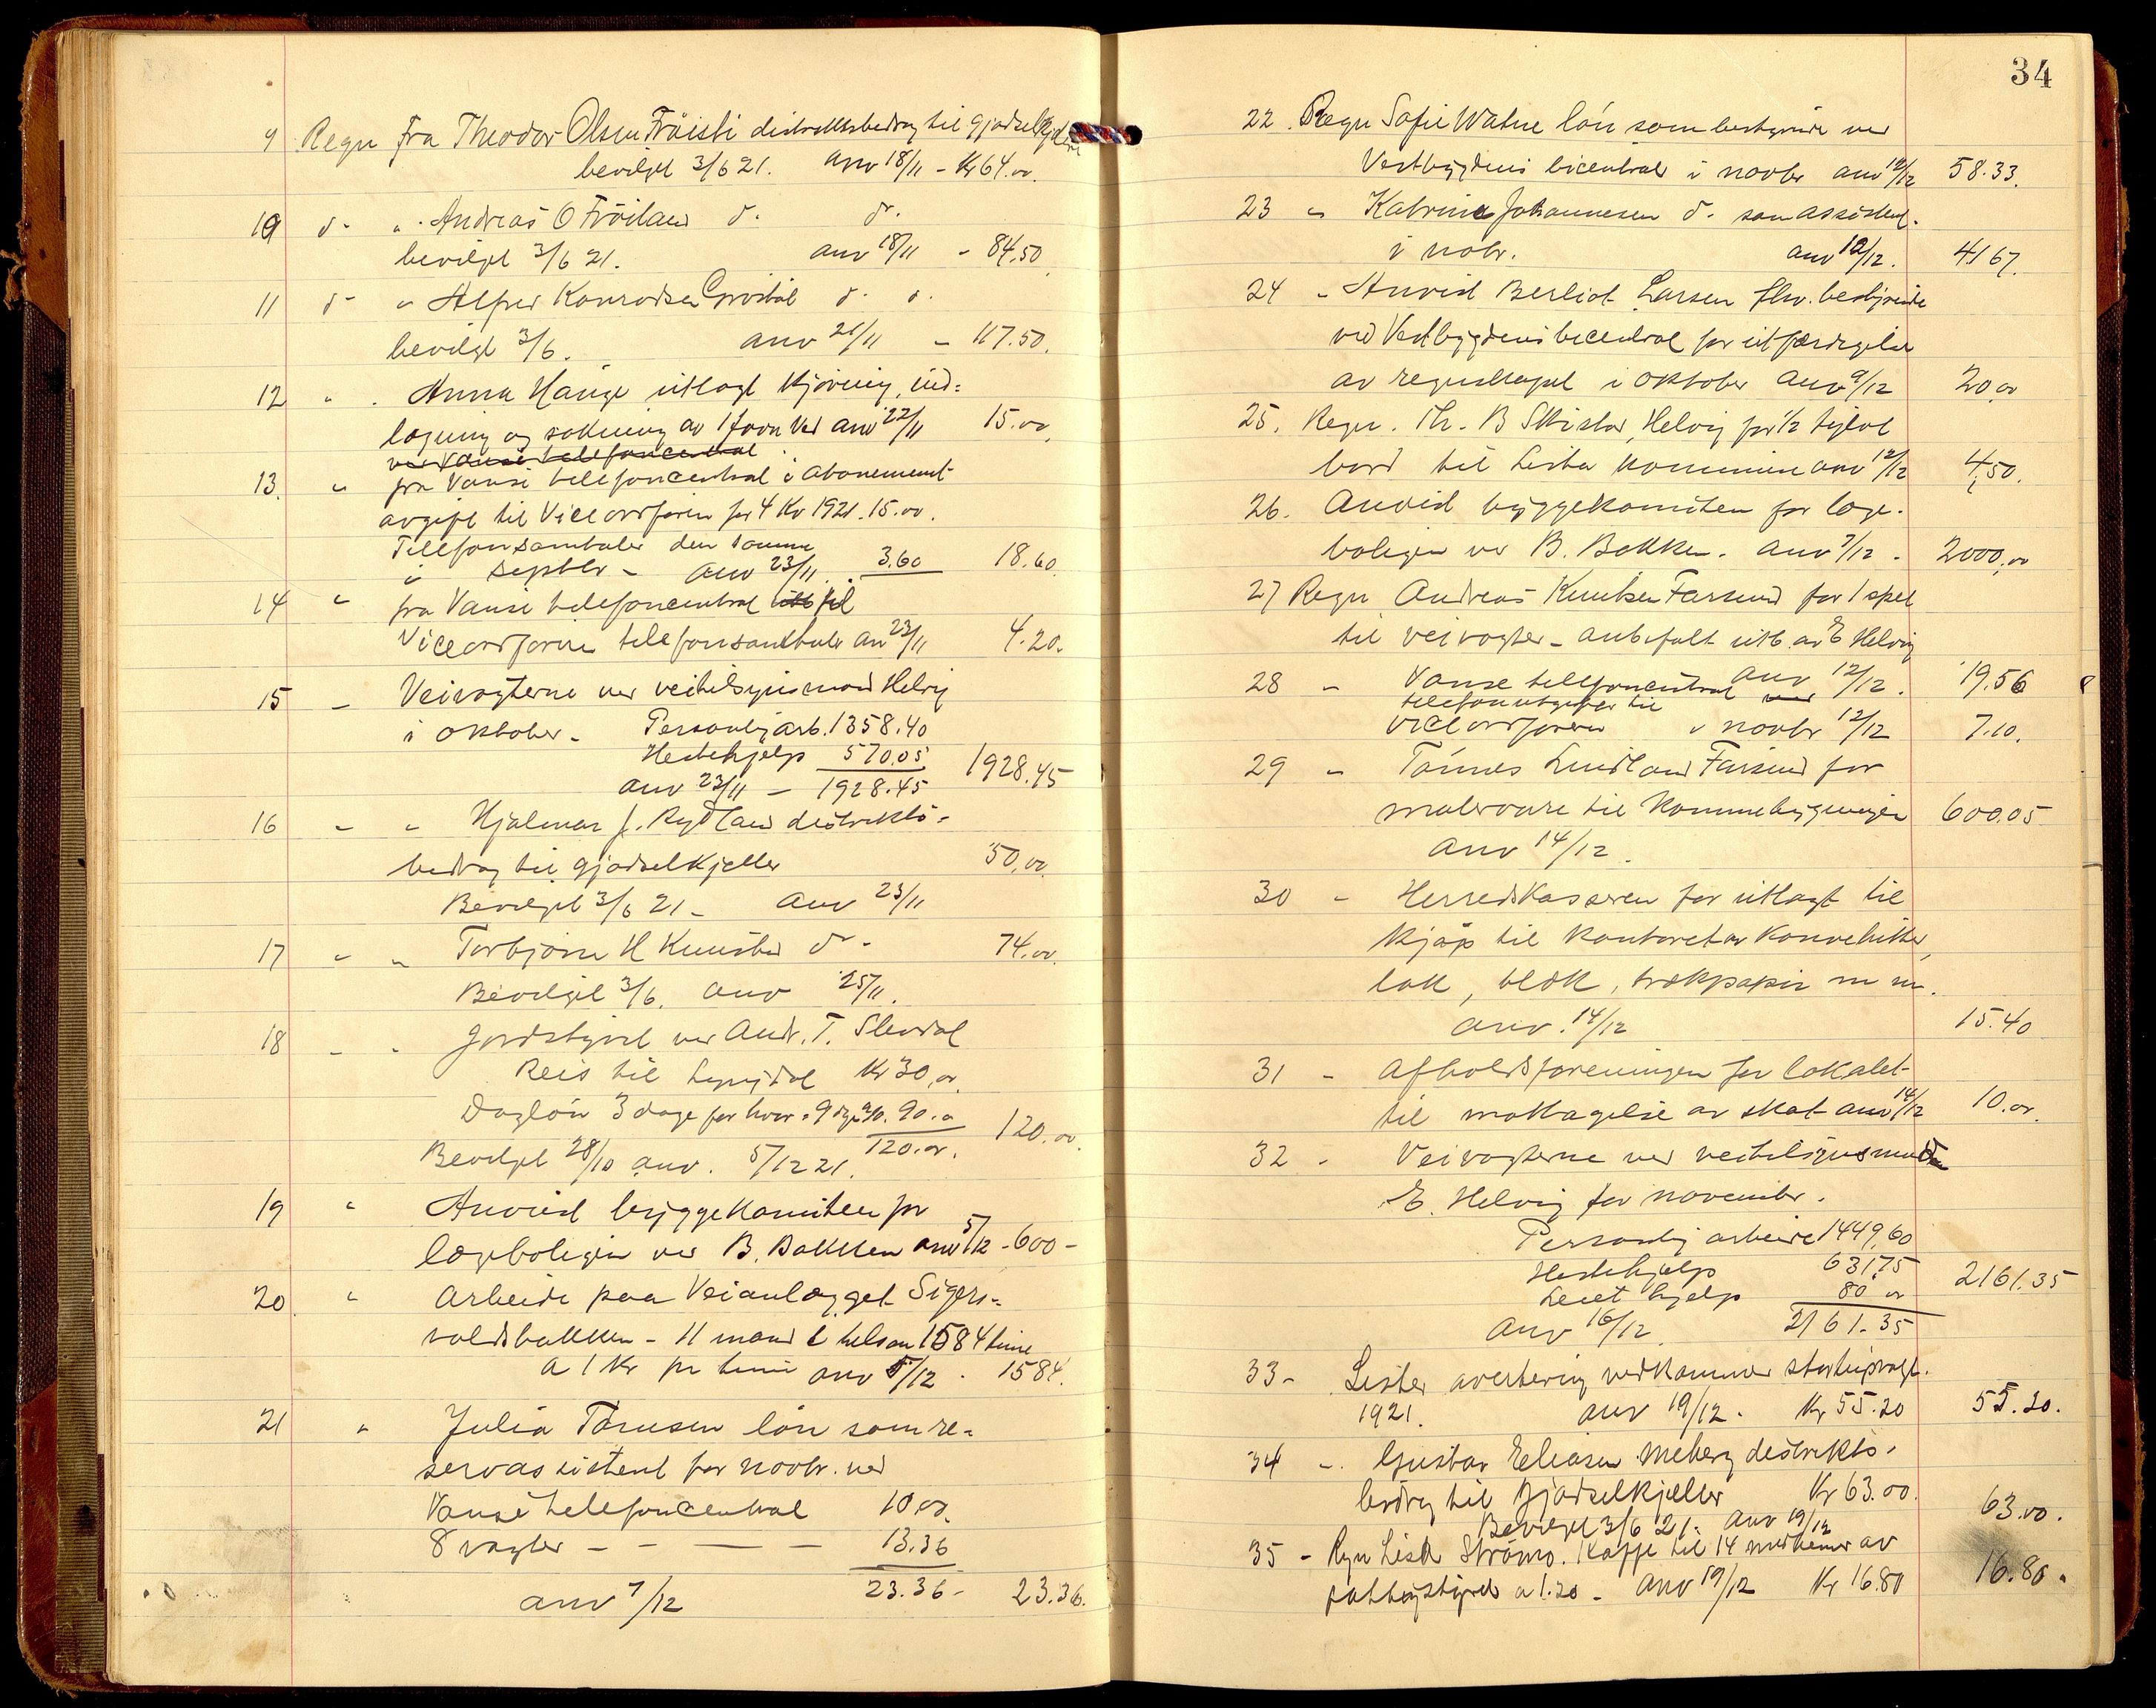 9 Regn fra Theodor Olsen Fröisti distriktsbedrag til gjødselkjeller
bevilget 3/6 21. anv 18/11 - Kr 64.00.
10 d- " Andreas O Fröiland d. d.
bevilgt 3/6 21. anv 18/11 - 84,50
11 d- " Alfred Konradsen d. d.
bevilgt 3/6. anv 21/11 - 117.50.
12 " . Anna Hauge utlagt kjöring, ind-
lægning og sakning av 1 favn Ved anv 22/11 15.00
ved Vanse telefoncentral
13. " fra Vanse telefoncentral i abonement
avgift til Viceordføren for 4 Kv 1921. 15.00.
Telefonsamtaler den samme
i septbr - anv 23/11. 3.60 18.60.
14 " fra Vanse telefoncentral til
Viceordføren telefonsamtale an 23/11 4.20.
15 - Veivogterne ved veitilsynsmand Helvig
i oktober - Personlig arb. 1358.40
Hestehjelp 570.05
anv 23/11 - 1928.45 1928.45
16 - " Hjalmar J. Rydland distrikts-
bedrag til gjødselkjeller 50,00.
Bevilget 3/6 21 - anv 23/11
17 - " Torbjörn H Knutsen d- 74.00.
Bevilget 3/6. anv 25/11.
18 - . Jordstyret ved Andr. T. Slevdal
Reis til Lyngdal Kr 30,00
Daglön 3 dage for hver = 9 dge 90.00
120.00. 120.00.
Bevilget 28/10 anv. 5/12 21.
19 " Anvist byggekomiteen for
lægeboligen ved B. Bakken anv 5/12 - 600 -
20 " Arbeide paa Veianlægget Sigers-
voldsbakken - 11 mand tilsam 1584 time
a 1 Kr pr time anv 5/12 . 1584.
21 " Julia Tönnesen lön som re-
servassistent for novbr. ved
Vanse telefoncentral 10,00.
8 vagter - - - - 13.36
anv 7/12 23.36 - 23.36.
34
22. Regn Sofie Watne lön som bestyrinde ved
Vestbygdens bicentral i novbr anv 12/12 58.33.
23 " Katrine Johannesen d. som assistent.
i nobr. anv 12/12. 41 67.
24 " Anvist Berliot Larsen fhv. bestyrinde
ved Vestbygdens bicentral for utfærdigelse
av regnskapet i oktober anv 9/12 20,00
25. Regn. Th. B Skistad, Helvig for 1/2 tylvt
bord til Lista kommune anv 12/12 4,50.
26. Anvist byggekomiten for læge-
boligen ved B. Bakken. anv 7/12 - 2000,00
27 Regn Andreas Knutsen Farsund for 1 spet
til veivogter - anbefalt utb. av E Helvig
anv 12/12. 19.56
28 - Vanse telefoncentral
telefonutgifter til
viceordføren i novbr 12/12 7.10.
29 - Tönnes Lindland Farsund for
malervare til Kommunebygningen 600.05
anv 14/12.
30 - Herredskassereren for utlagt til
kjøp til kontoret av Konvolutter,
lak, blæk, trækpapir m m.
anv. 14/12 15.40
31 - Afholdsforeningen for lokalet
til mottagelse av skat anv 14/12 10.00.
32 - Veivogterne ved veitilsynsmanden
E. Helvig for november.
Personlig arbeide 1449,60
Hestehjelp 631.75
Leiet hjelp 80 00
anv 16/12. 2161.35 2161.35
33 - Lister avertering vedkommende stortingsvalget.
1921. anv 19/12. Kr 55.20 55.20.
34 -. Gustav Eliasen Meberg distrikts-
bedrag til Gjødselkjeller Kr 63.00.
Bevilget 3/6 21. anv 19/12 63.00.
35 - Regn Lisa Strömo. Kaffe til 14 medlemer av
a 1.20 - anv 19/12 Kr 16.80 16.80.